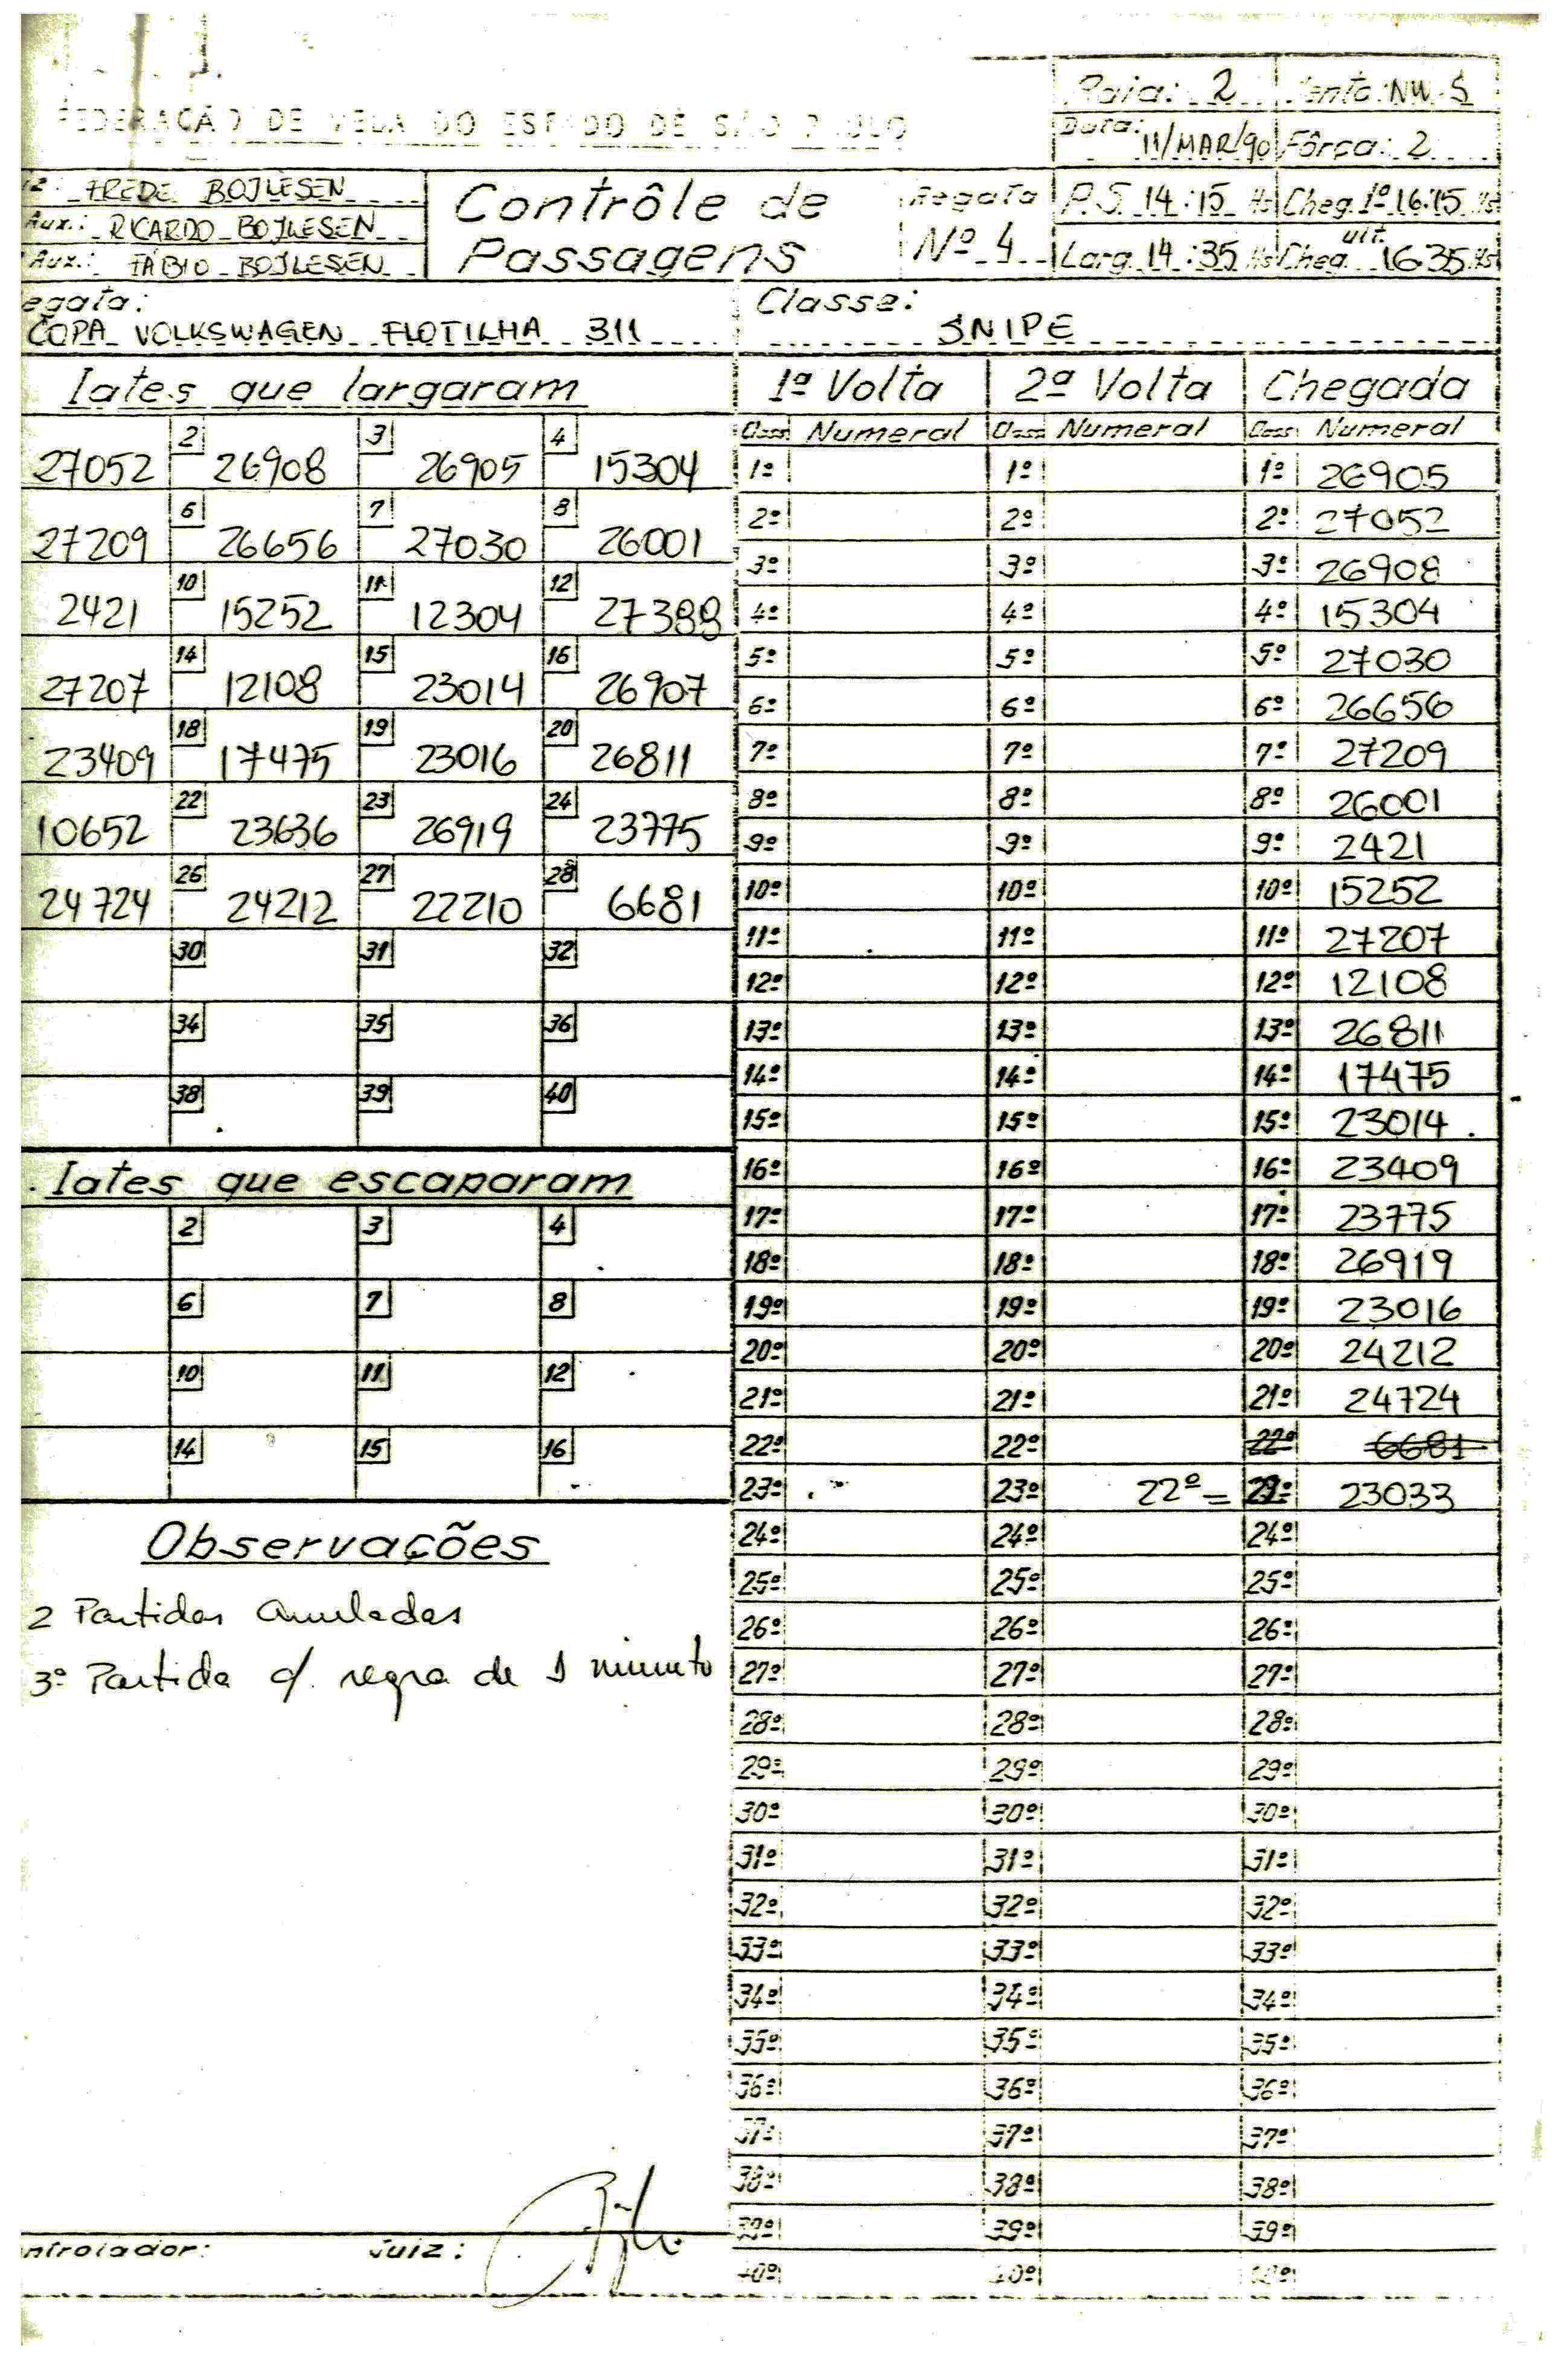 FEDERAÇÃO DE VELA DO ESTADO DE SÃO PAULO
Raia: 2 Vento: NW-S
Data: 11/MAR/90 Fôrça: 2
FREDE BOJLESEN
Aux.: RICARDO BOJLESEN
Aux.: FÁBIO BOJLESEN
Contrôle de
Passagens
Regata
Nº 4
P.S. 14:15 Hs Cheg. 1º 16:15 Hs
Larg. 14:35 Hs Cheg. ult. 16:35 Hs
egata:
COPA VOLKSWAGEN FLOTILHA 311
Classe:
SNIPE
Iates que largaram
27052 2 26908 3 26905 4 15304
27209 6 26656 7 27030 8 26001
2421 10 15252 11 12304 12 27388
27207 14 12108 15 23014 16 26907
23409 18 17475 19 23016 20 26811
10652 22 23636 23 26919 24 23775
24724 26 24212 27 22210 28 6681
30 31 32
34 35 36
38 39 40
Iates que escaparam
2 3 4
6 7 8
10 11 12
14 15 16
Observações
2 Partidas Anuladas
3ª Partida c/. regra de 1 minuto
ntrolador: Juiz:
1ª Volta 2ª Volta Chegada
Class. Numeral Class. Numeral Class. Numeral
1º 1º 1º 26905
2º 2º 2º 27052
3º 3º 3º 26908
4º 4º 4º 15304
5º 5º 5º 27030
6º 6º 6º 26656
7º 7º 7º 27209
8º 8º 8º 26001
9º 9º 9º 2421
10º 10º 10º 15252
11º 11º 11º 27207
12º 12º 12º 12108
13º 13º 13º 26811
14º 14º 14º 17475
15º 15º 15º 23014
16º 16º 16º 23409
17º 17º 17º 23775
18º 18º 18º 26919
19º 19º 19º 23016
20º 20º 20º 24212
21º 21º 21º 24724
22º 22º 22º 6681
23º 23º 22º = 23º 23033
24º 24º 24º
25º 25º 25º
26º 26º 26º
27º 27º 27º
28º 28º 28º
29º 29º 29º
30º 30º 30º
31º 31º 31º
32º 32º 32º
33º 33º 33º
34º 34º 34º
35º 35º 35º
36º 36º 36º
37º 37º 37º
38º 38º 38º
39º 39º 39º
40º 40º 40º